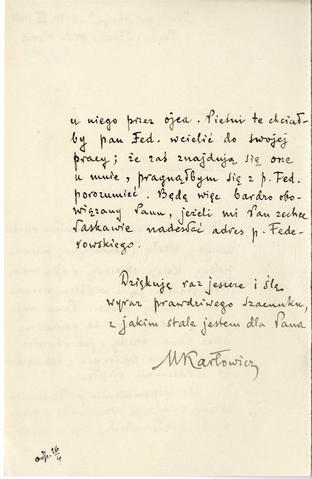 u niego przez ojca. Pieśni te chciał-
by pan Fed. wcielić do swojej
pracy; że zaś znajdują się one
u mnie, pragnąłbym się z p. Fed.
porozumieć. Będę więc bardzo obo-
wiązany Panu, jeżeli mi Pan zechce
łaskawie nadesłać adres p. Fede-
rowskiego.
Dziękuję raz jeszcze i ślę
wyraz prawdziwego szacunku,
z jakim stale jestem dla Pana
MKarłowicz
odp. 26/4